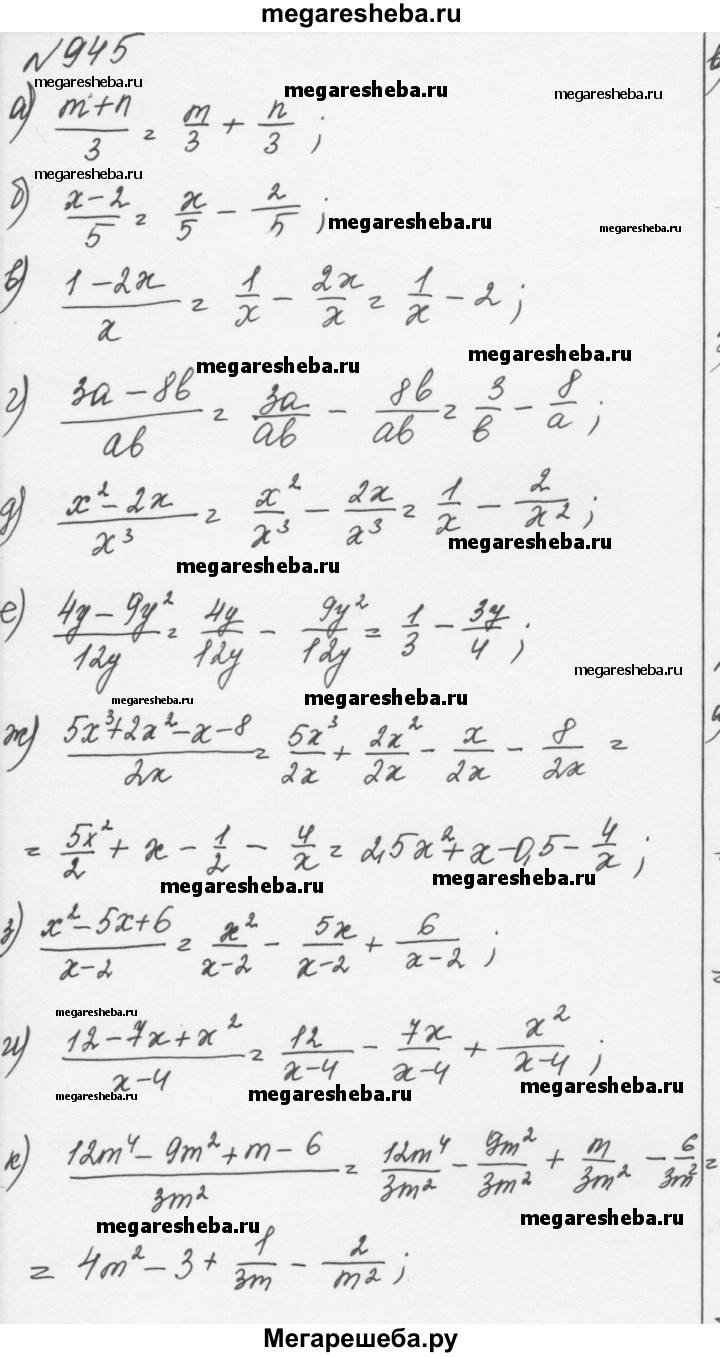 megaresheba.ru
№945
megaresheba.ru megaresheba.ru megaresheba.ru
а) (m+n)/3 = m/3 + n/3 ;
megaresheba.ru
б) (x-2)/5 = x/5 - 2/5 ;
megaresheba.ru megaresheba.ru
в) (1-2x)/x = 1/x - 2x/x = 1/x - 2 ;
megaresheba.ru megaresheba.ru
г) (3a-8b)/ab = 3a/ab - 8b/ab = 3/b - 8/a ;
д) (x²-2x)/x³ = x²/x³ - 2x/x³ = 1/x - 2/x² ;
megaresheba.ru megaresheba.ru
е) (4y-9y²)/12y = 4y/12y - 9y²/12y = 1/3 - 3y/4 ;
megaresheba.ru
megaresheba.ru megaresheba.ru
ж) (5x³+2x²-x-8)/2x = 5x³/2x + 2x²/2x - x/2x - 8/2x =
= 5x²/2 + x - 1/2 - 4/x = 2,5x²+x-0,5-4/x ;
megaresheba.ru megaresheba.ru
з) (x²-5x+6)/(x-2) = x²/(x-2) - 5x/(x-2) + 6/(x-2) ;
megaresheba.ru
и) (12-7x+x²)/(x-4) = 12/(x-4) - 7x/(x-4) + x²/(x-4) ;
megaresheba.ru megaresheba.ru megaresheba.ru
к) (12m⁴-9m²+m-6)/3m² = 12m⁴/3m² - 9m²/3m² + m/3m² - 6/3m² =
megaresheba.ru megaresheba.ru
= 4m²-3+1/3m - 2/m² ;
Мегарешеба.ру